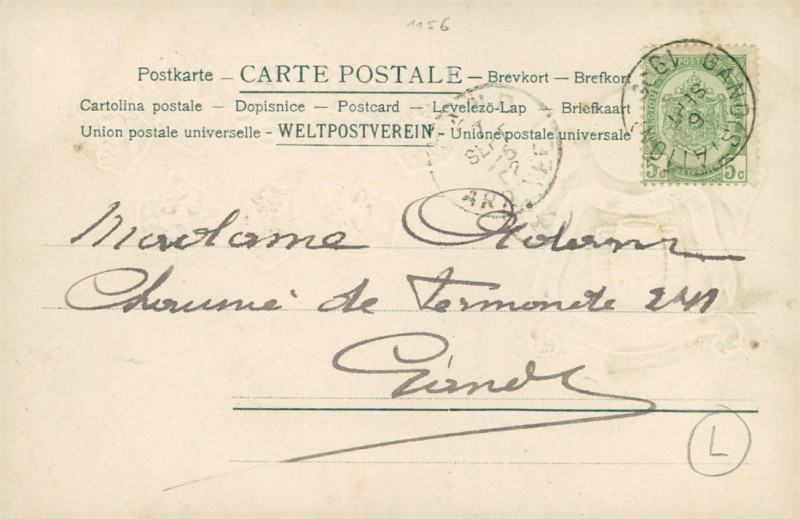 1156
Postkarte – CARTE POSTALE – Brevkort – Brefkort
Cartolina postale – Dopisnice – Postcard – Levelezö-Lap – Briefkaart
Union postale universelle – WELTPOSTVEREIN – Unione postale universale
GAND (STATION)
SEPT
5c 5c
SEPT
Madame Adam
Chaussée de Termonde 241
Gand
L